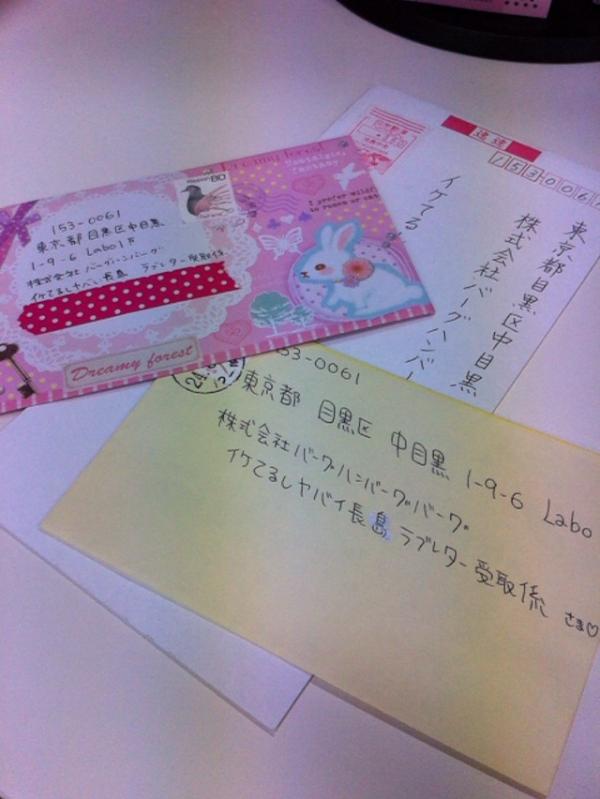 Dreamy forest
Nostalgic
Fantasy
I prefer wild
NIPPON 80
153-0061
東京都目黒区中目黒
1-9-6 Labo1F
株式会社バーグハンバーグ
イケてるしヤバい長島 ラブレター受取係
Dreamy forest
速達
153006
東京都目黒区中目黒
株式会社バーグハンバー
イケてる
53-0061
東京都 目黒区 中目黒 1-9-6 Labo
株式会社バーグハンバーグバーグ
イケてるしヤバイ長島 ラブレター受取係 さま♡